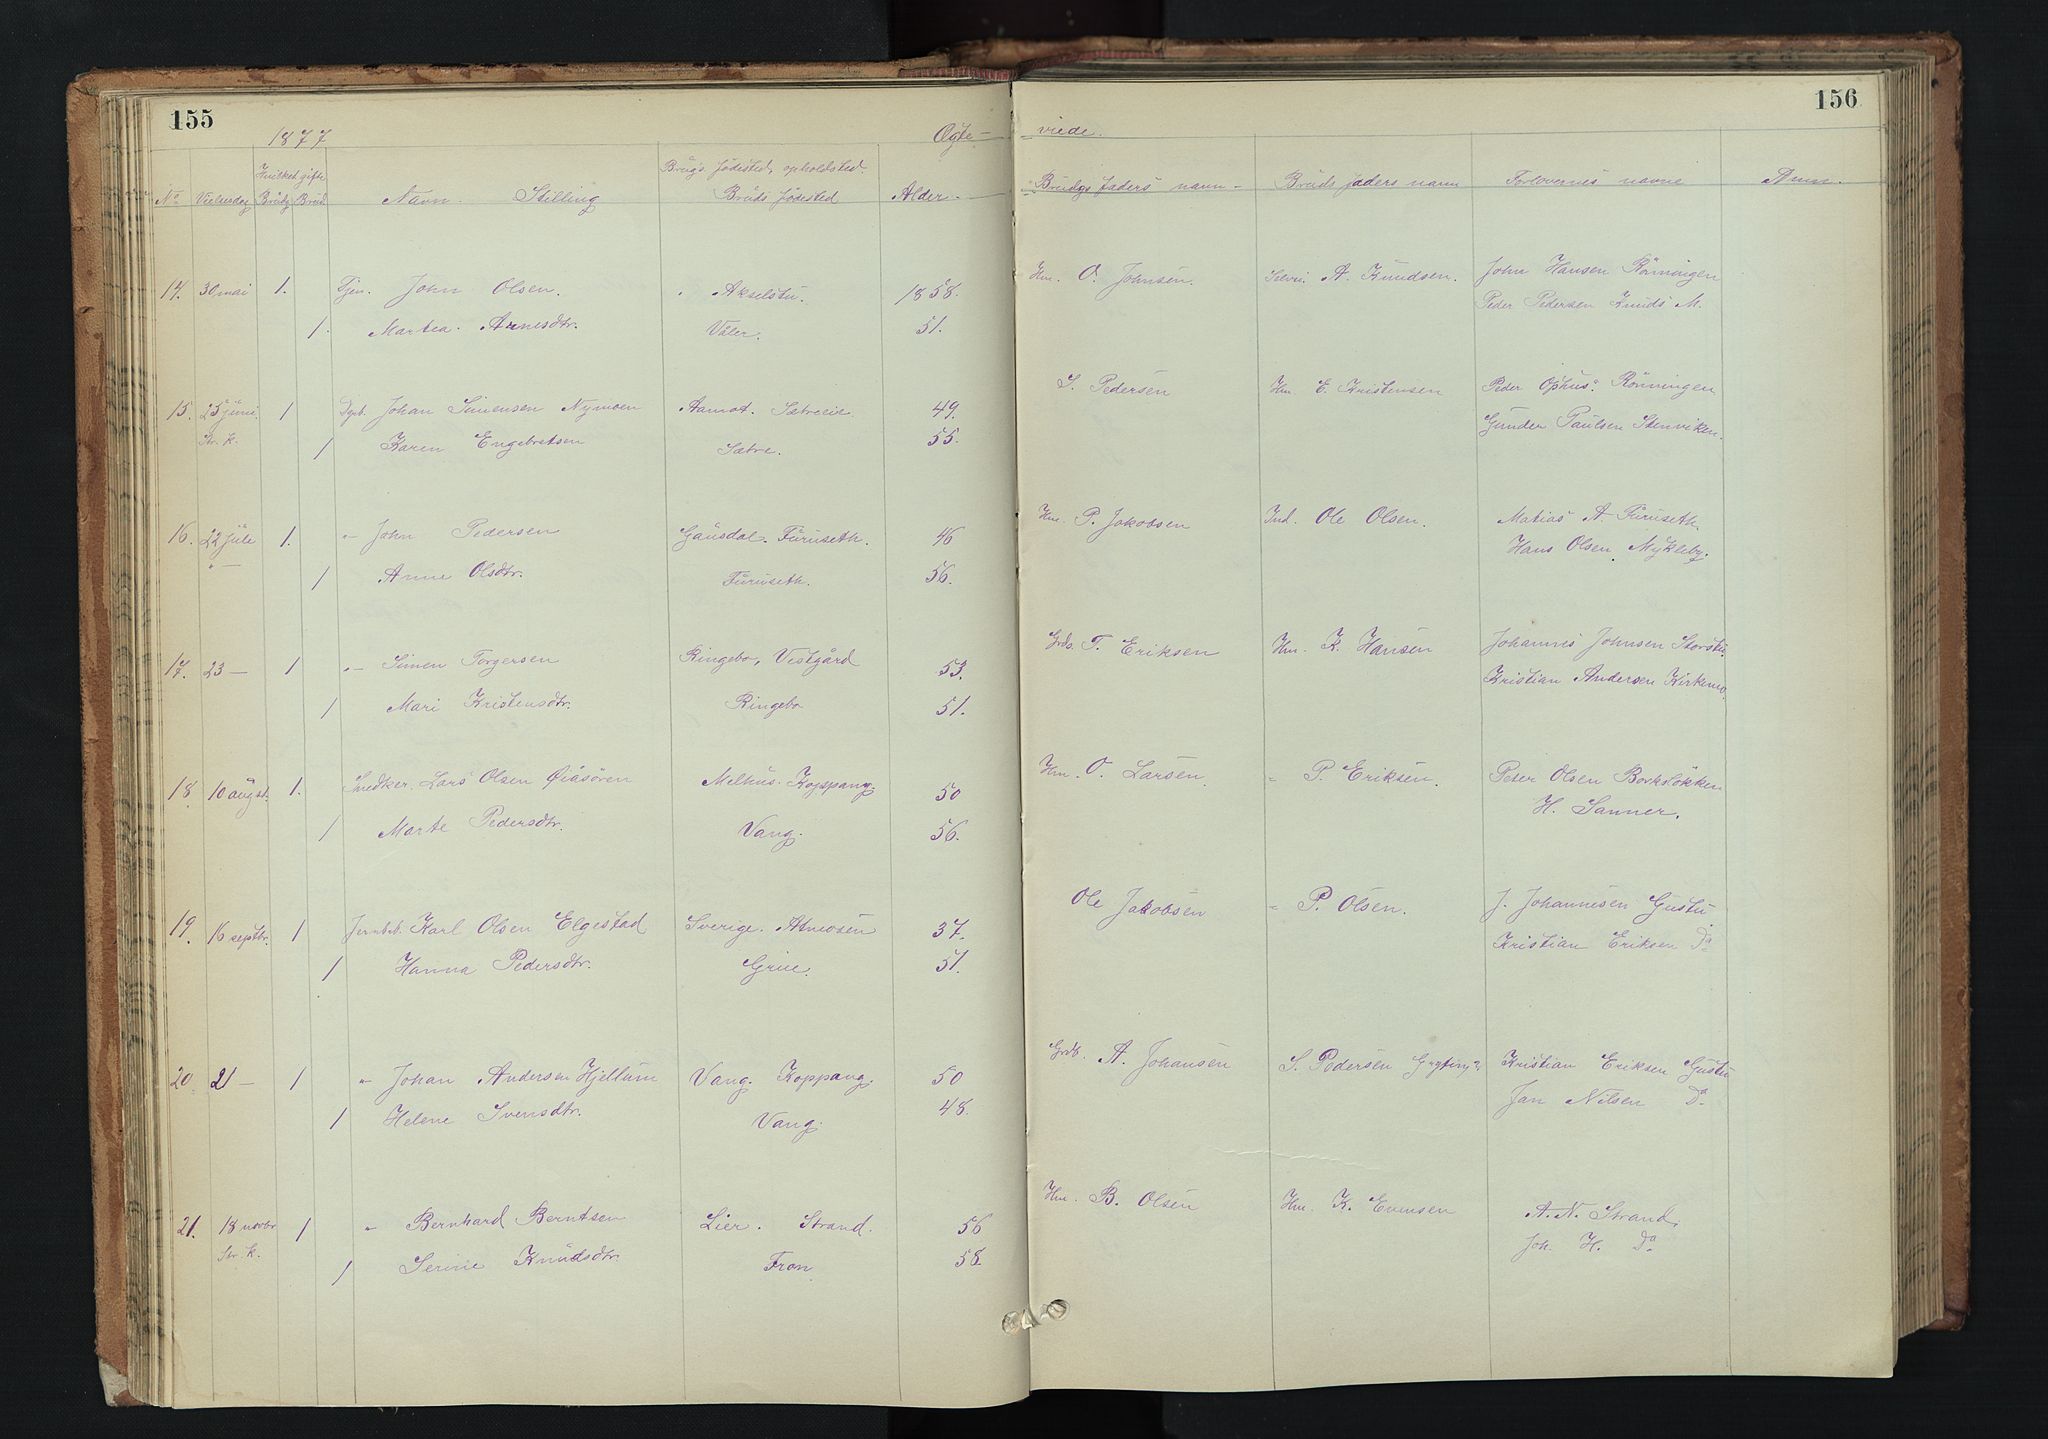 155
156
1877
Ægte-
viede.
No Vielsesdag Hvilket gifte Brudg Brud Navn. Stilling Brudgs. fødested, opholdsted. Bruds fødested Alder.
Brudgs faders navn - Bruds faders navn Forlovernes navne Anm.
14. 30 mai 1. Tjen. John Olsen. Akselstu. 1858. Hm. O. Johnsen. Selvei. A. Knudsen. John Hansen Rönningen
1. Martea. Arnesdtr. Våler. 51. Peder Pedersen Knuds M.
15. 25 juni 1 Johan Simensen Nymoen Aamot. Sætre 49. S. Pedersen Hm E. Kristensen Peder Ophus. Rönningen
Str. k. 1 Karen Engebretsen Sætre. 55. Gunder Paulsen Stenviken.
16. 22 jule 1. " John Pedersen Gausdal. Furuseth. 46 Hm. P. Jakobsen Ind. Ole Olsen. Matias A. Furuseth.
" — 1 Anne Olsdtr. Furuseth. 56. Hans Olsen. Mykleby.
17. 23 — 1 " Simen Torgersen Ringebo, Vestgård 53. Grds. T. Eriksen Hm. K. Hansen Johannes Johnsen Storstu.
1 Mari Kristensdtr. Ringebo 51. Kristian Andersen Kirkemo.
18 10 augst. 1. Snedker. Lars Olsen Öiåsören Melhus. Koppang. 50 Hm. O. Larsen " P. Eriksen. Peter Olsen Borkslökken
1 Marte Pedersdtr. Vang. 56. H. Sanner.
19. 16 septbr. 1 Jernbarb. Karl Olsen Elgestad Sverige. Atneosen 37. Ole Jakobsen " P. Olsen. J. Johannesen Gustu
1 Hanna Pedersdtr. Grue. 51. Kristian Eriksen Do
20 21 — 1 " Johan Andersen Hjellum Vang. Koppang. 50 Grdb. A. Johansen S. Pedersen Kristian Eriksen Gustu
1 Helene Svensdtr. Vang. 48. Jan Nilsen Do
21. 18 novbr 1 " Bernhard Berntsen Lier. Strand. 56 Hm. B. Olsen Hm. K. Evensen A. N. Strand.
Str. k. 1 Serine Knudsdtr. Fron 58. Joh. H. Do